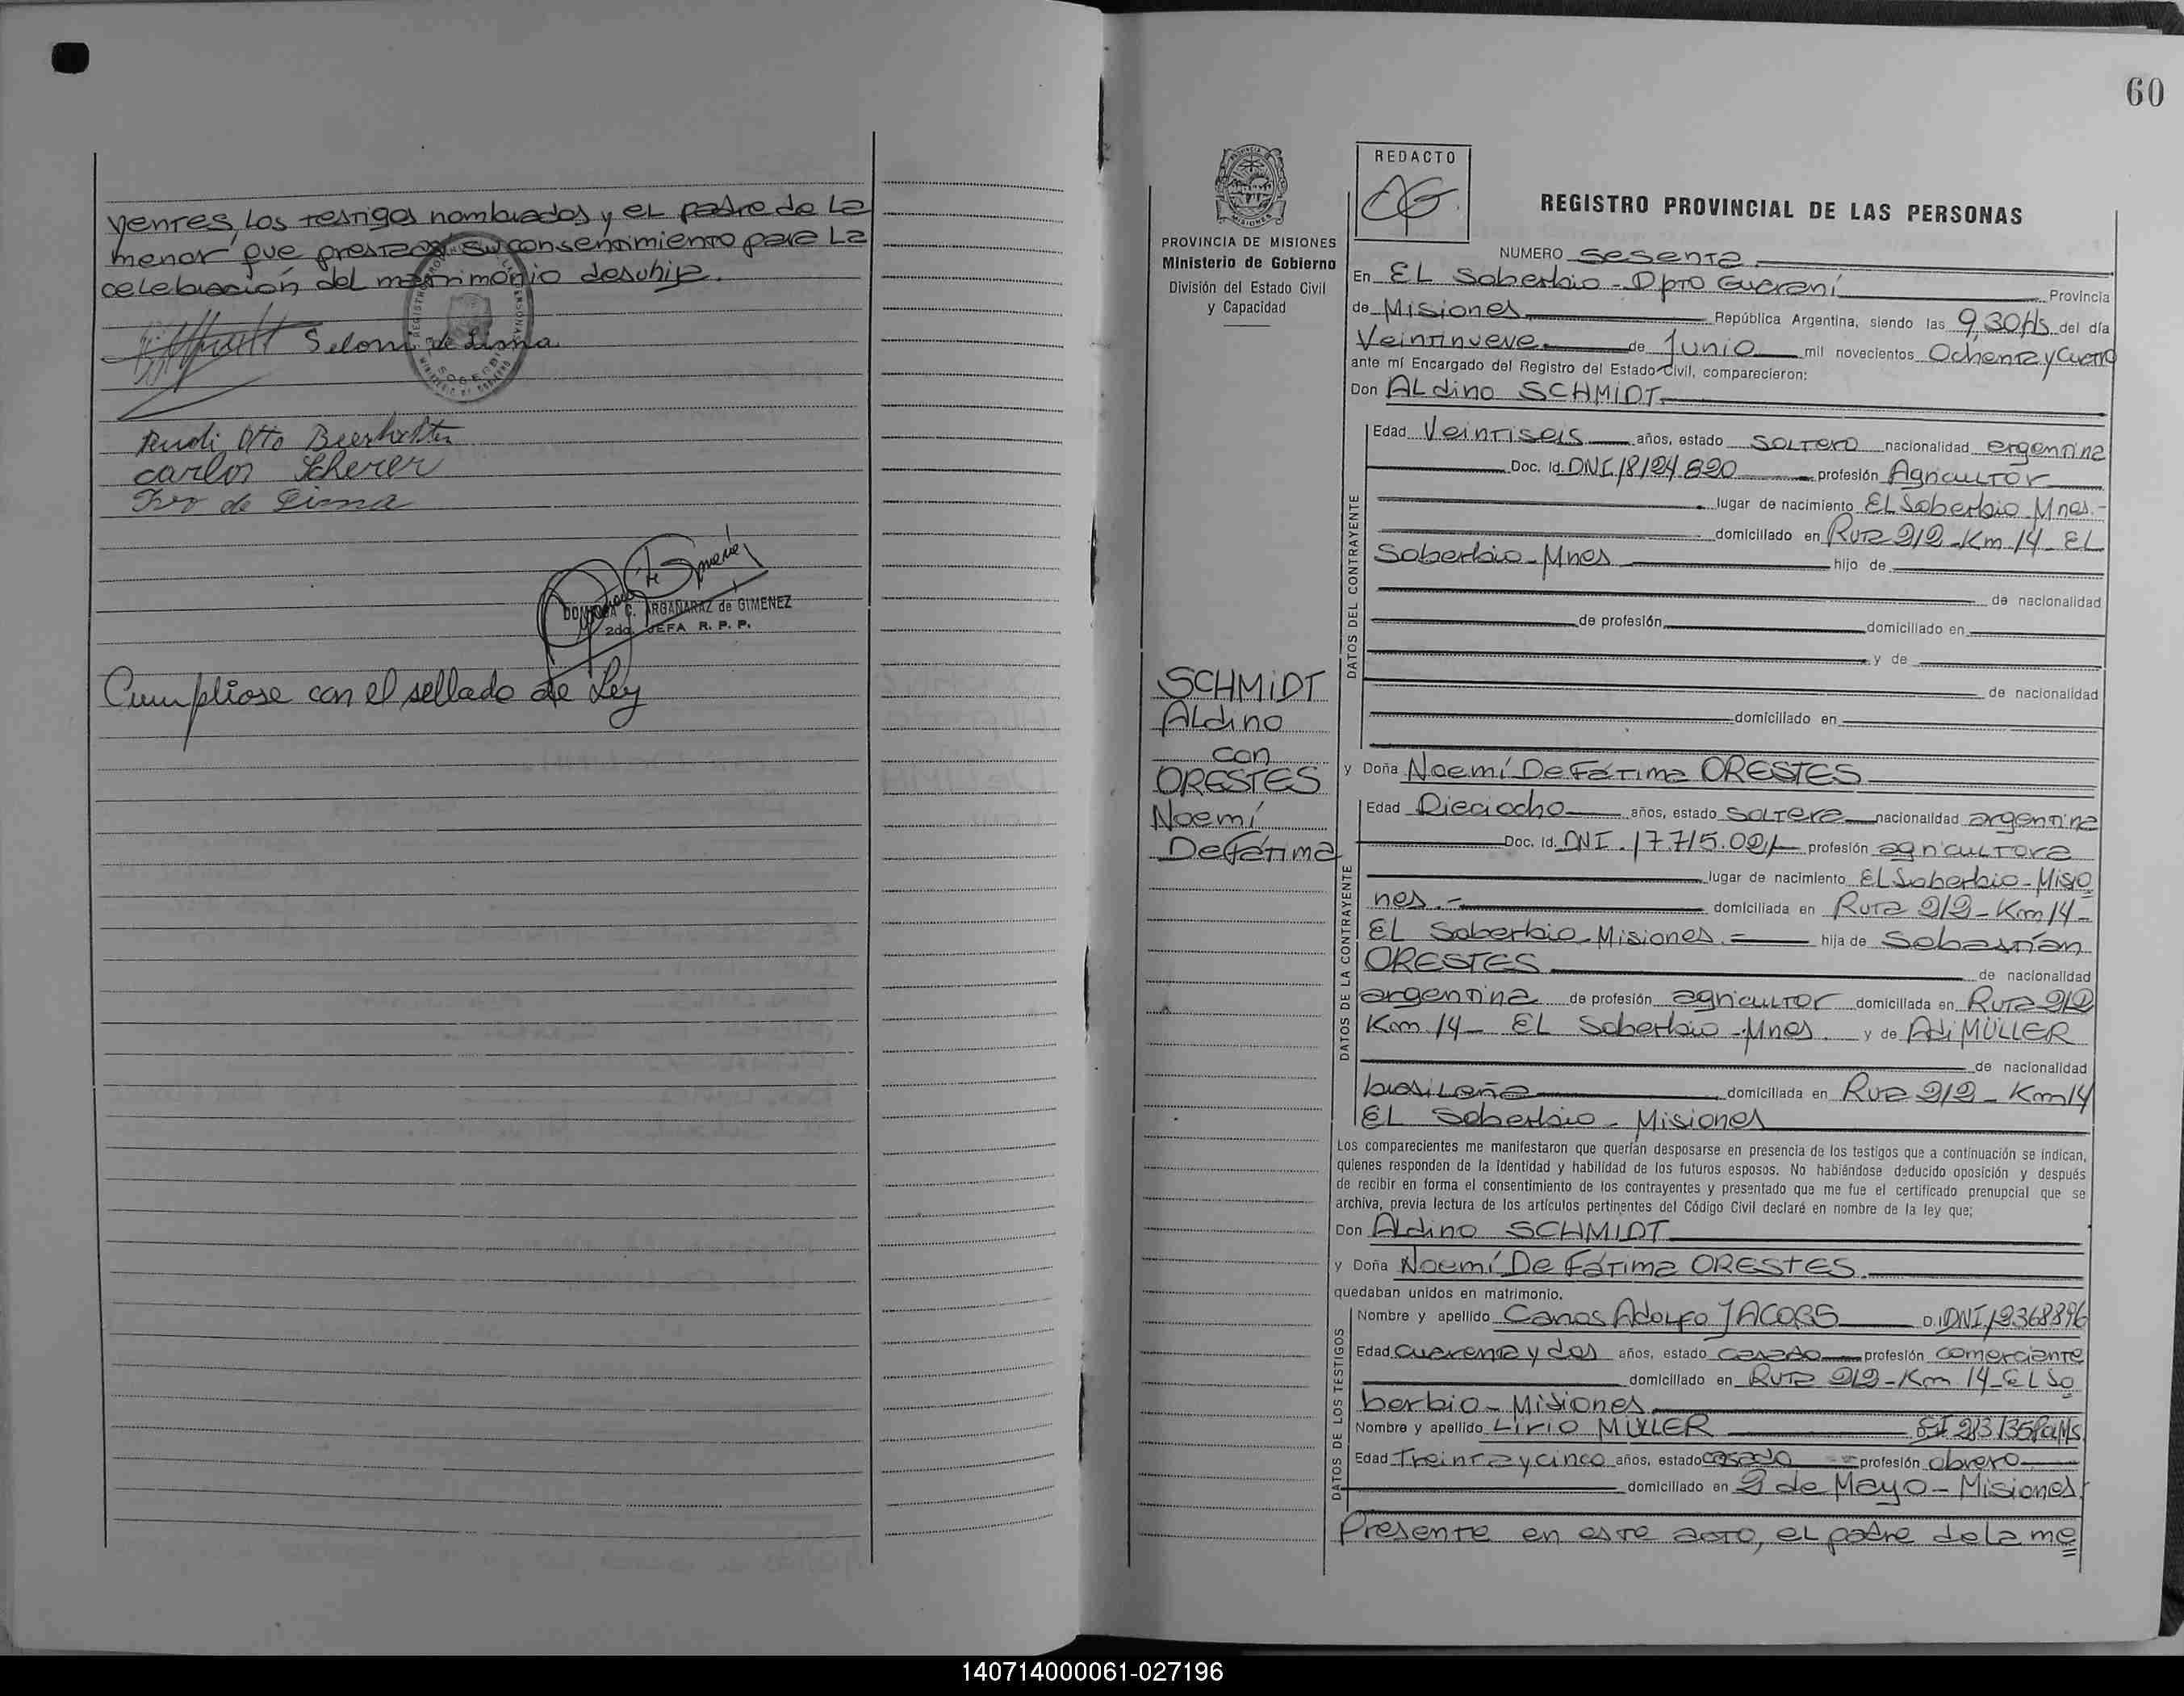 yentes, los testigos nombrados y el padre de la
menor que presta su consentimiento para la
celebración del matrimonio desuhija.
Seloni de Lima
Rudi Otto
carlos Scherer
Ivo de Lima
C. ARGAÑARAZ de GIMENEZ
2da. JEFA R. P. P.
Cumpliose con el sellado de Ley
60
PROVINCIA DE MISIONES
Ministerio de Gobierno
División del Estado Civil
y Capacidad
SCHMIDT
Aldino
con
ORESTES
Noemí
DeFátima
REDACTO
REGISTRO PROVINCIAL DE LAS PERSONAS
NUMERO sesenta
En EL Soberbio - Dpto Guaraní Provincia
de Misiones República Argentina, siendo las 9,30Hs del día
Veintinueve de Junio mil novecientos Ochenta y Cuatro
ante mí Encargado del Registro del Estado Civil, comparecieron:
Don ALdino SCHMIDT
DATOS DEL CONTRAYENTE
Edad Veintiseis años, estado soltero nacionalidad argentina
Doc. Id. DNI.18124.820 profesión Agricultor
lugar de nacimiento EL Soberbio Mnes.-
domiciliado en Ruta 212 - Km 14 - EL
Soberbio - Mnes hijo de
de nacionalidad
de profesión domiciliado en
y de
de nacionalidad
domiciliado en
y Doña Noemí De Fátima ORESTES
DATOS DE LA CONTRAYENTE
Edad Dieciocho años, estado soltera nacionalidad argentina
Doc. Id. DNI. 17.715.021 profesión agricultora
lugar de nacimiento EL Soberbio - Misio
nes.- domiciliada en Ruta 212 - Km 14 -
EL Soberbio - Misiones.= hija de Sebastían
ORESTES de nacionalidad
argentina de profesión agricultor domiciliada en Ruta 212
Km. 14 - EL Soberbio - Mnes. y de Adi MÜLLER
de nacionalidad
brasileña domiciliada en Ruta 212 - Km 14
EL Soberbio - Misiones
Los comparecientes me manifestaron que querían desposarse en presencia de los testigos que a continuación se indican,
quienes responden de la identidad y habilidad de los futuros esposos. No habiéndose deducido oposición y después
de recibir en forma el consentimiento de los contrayentes y presentado que me fue el certificado prenupcial que se
archiva, previa lectura de los artículos pertinentes del Código Civil declaré en nombre de la ley que;
Don ALdino SCHMIDT
y Doña Noemí De Fátima ORESTES
quedaban unidos en matrimonio.
DATOS DE LOS TESTIGOS
Nombre y apellido Adolfo JACOBS D.I. DNI. 12368896
Edad cuarenta y dos años, estado casado profesión comerciante
domiciliado en Ruta 212 - Km 14 - EL So
berbio - Misiones
Nombre y apellido Lirio MÜLLER
Edad Treinta y cinco años, estado casado profesión obrero
domiciliado en 2 de Mayo - Misiones.
Presente en este acto, el padre de la me
140714000061-027196